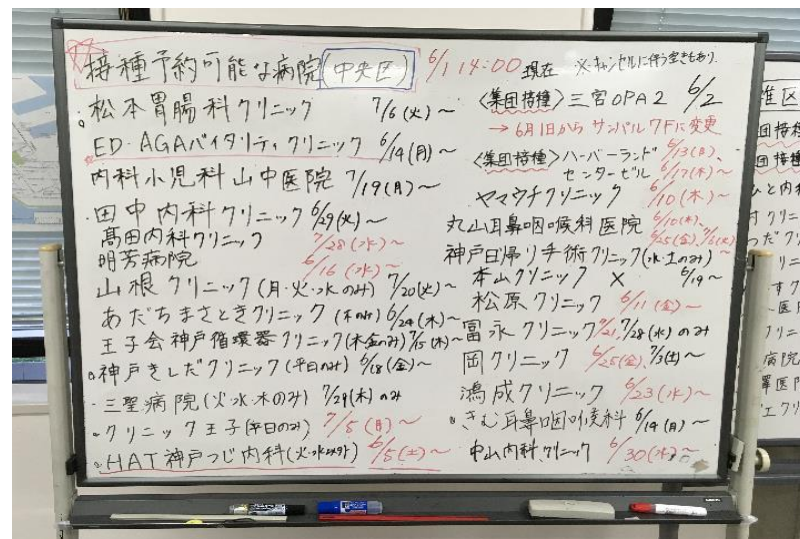 接種予約可能な病院(中央区) 6/1 14:00 現在 ※キャンセルに伴う空きもあり
松本胃腸科クリニック 7/6(火)~
ED・AGAバイタリティクリニック 6/14(月)~
内科小児科山中医院 7/19(月)~
田中内科クリニック 6/29(火)~
髙田内科クリニック 7/28(水)~
明芳病院 6/16(水)~
山根クリニック(月・火・水のみ) 7/20(火)~
あだちまさときクリニック(木のみ) 6/24(木)~
王子会神戸循環器クリニック(木金のみ) 7/15(木)~
神戸きしだクリニック(平日のみ) 6/18(金)~
三聖病院(火・水・木のみ) 7/29(木)のみ
クリニック王子(平日のみ) 7/5(月)~
HAT神戸つじ内科(火・水以外) 6/5(土)~
〈集団接種〉三宮OPA2 6/2
→6月1日からサンパル7Fに変更
〈集団接種〉ハーバーランド 6/13(日)、
センタービル 6/17(木)~
ヤマウチクリニック 6/10(木)~
丸山耳鼻咽喉科医院 6/10(木)、
6/25(金)、7/6(火)~
神戸日帰り手術クリニック(水・土のみ)
本山クリニック × 6/19~
松原クリニック 6/11(金)~
冨永クリニック 7/21、7/28(水)のみ
岡クリニック 6/25(金)、7/3(土)~
鴻成クリニック 6/23(水)~
きむ耳鼻咽喉科 6/14(月)~
中山内科クリニック 6/30(水)~